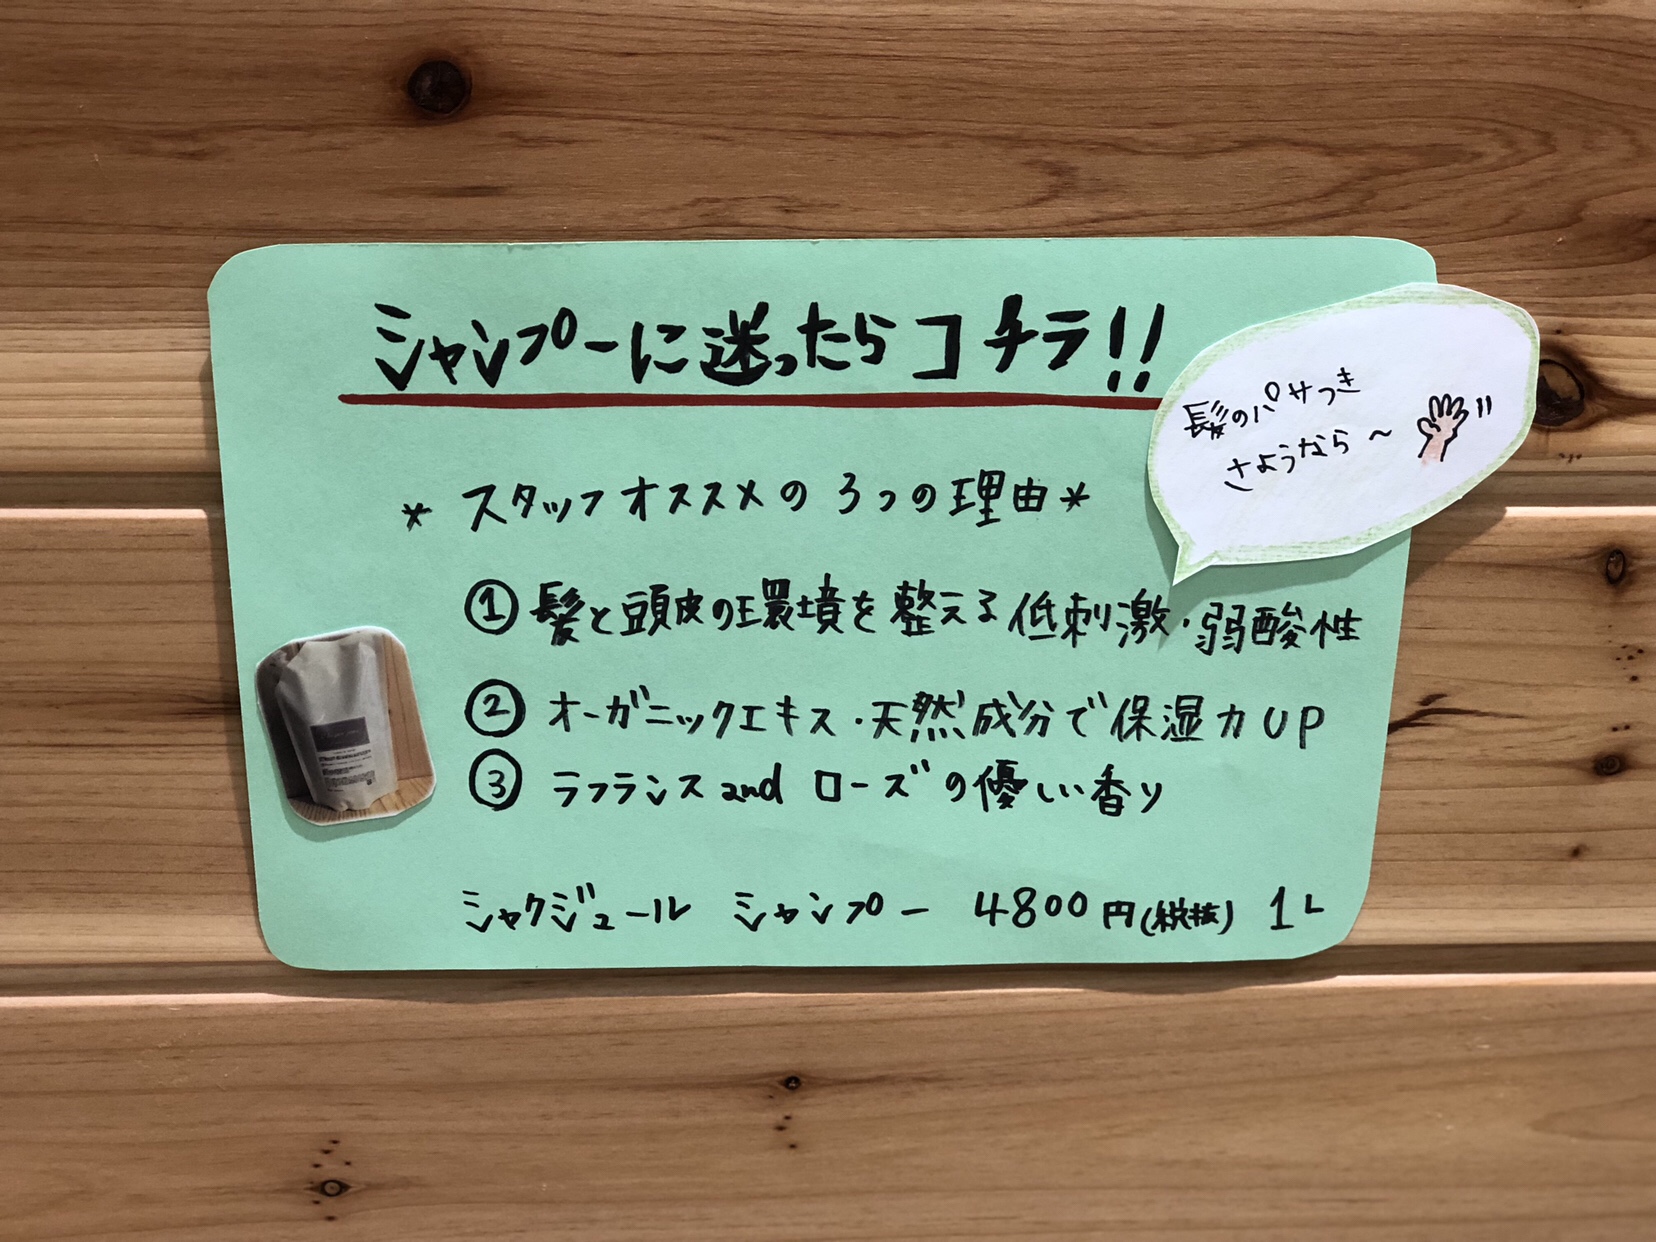 シャンプーに迷ったらコチラ!!
髪のパサつき
さようなら〜
* スタッフオススメの3つの理由*
① 髪と頭皮の環境を整える低刺激・弱酸性
② オーガニックエキス・天然成分で保湿力UP
③ ラフランス and ローズの優しい香り
シャクジュール シャンプー 4800円(税抜) 1L